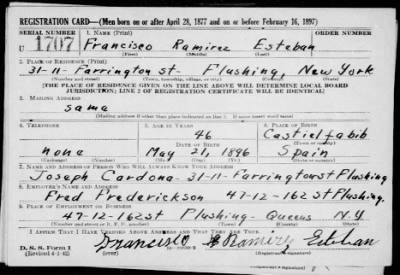 REGISTRATION CARD—(Men born on or after April 28, 1877 and on or before February 16, 1897)
SERIAL NUMBER 1. NAME (Print) ORDER NUMBER
U 1707 Francisco Ramirez Esteban
(First) (Middle) (Last)
2. PLACE OF RESIDENCE (Print)
31-11-Farrington st- Flushing, New York
(Number and street) (Town, township, village, or city) (County) (State)
[THE PLACE OF RESIDENCE GIVEN ON THE LINE ABOVE WILL DETERMINE LOCAL BOARD
JURISDICTION; LINE 2 OF REGISTRATION CERTIFICATE WILL BE IDENTICAL]
3. MAILING ADDRESS
sama
[Mailing address if other than place indicated on line 2. If same insert word same]
4. TELEPHONE 5. AGE IN YEARS 6. PLACE OF BIRTH
46 Castielfabib
DATE OF BIRTH
none May 21, 1896 Spain
(Exchange) (Number) (Mo.) (Day) (Yr.) (State or country)
7. NAME AND ADDRESS OF PERSON WHO WILL ALWAYS KNOW YOUR ADDRESS
Joseph Cardona-31-11-Farringtonst Flushing
8. EMPLOYER'S NAME AND ADDRESS
Fred Frederickson 47-12-162st Flushing.
9. PLACE OF EMPLOYMENT OR BUSINESS
47-12-162st Flushing- Queens N.Y
(Number and street or R. F. D. number) (Town) (County) (State)
I AFFIRM THAT I HAVE VERIFIED ABOVE ANSWERS AND THAT THEY ARE TRUE.
D. S. S. Form 1
(Revised 4-1-42)
Francisco Ramirez Esteban